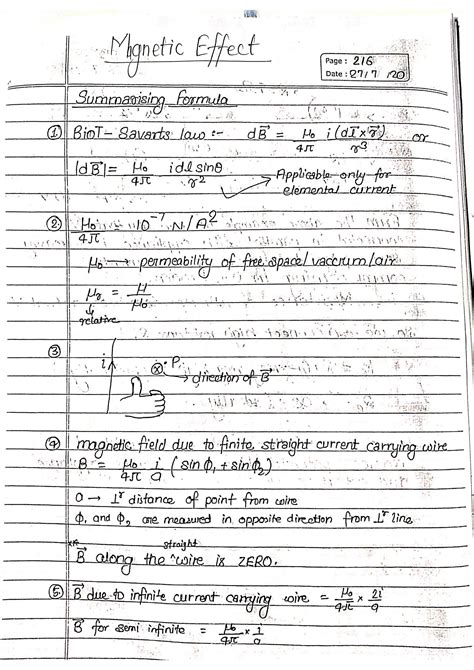 Magnetic Effect
Page: 216
Date: 27/7/20
Summarising Formula
① BioT-Savarts law :- dB⃗ = μ₀/4π i(dl⃗ × r⃗)/r³ or
|dB⃗| = μ₀/4π idlsinθ/r²
→ Applicable only for
elemental current
② μ₀/4π = 10⁻⁷ N/A²
μ₀ → permeability of free space/vaccum/air
μr = μ/μ₀
↓
relative
③ i ⊗ • P
→ direction of B⃗
④ magnetic field due to finite straight current carrying wire
B = μ₀/4π i/a (sinφ₁ + sinφ₂)
a → ⊥ʳ distance of point from wire
φ₁ and φ₂ are measured in opposite direction from ⊥ʳ line
** B⃗ along the ^straight wire is ZERO.
⑤ B⃗ due to infinite current carrying wire = μ₀/4π × 2i/a
B⃗ for semi infinite = μ₀/4π × i/a